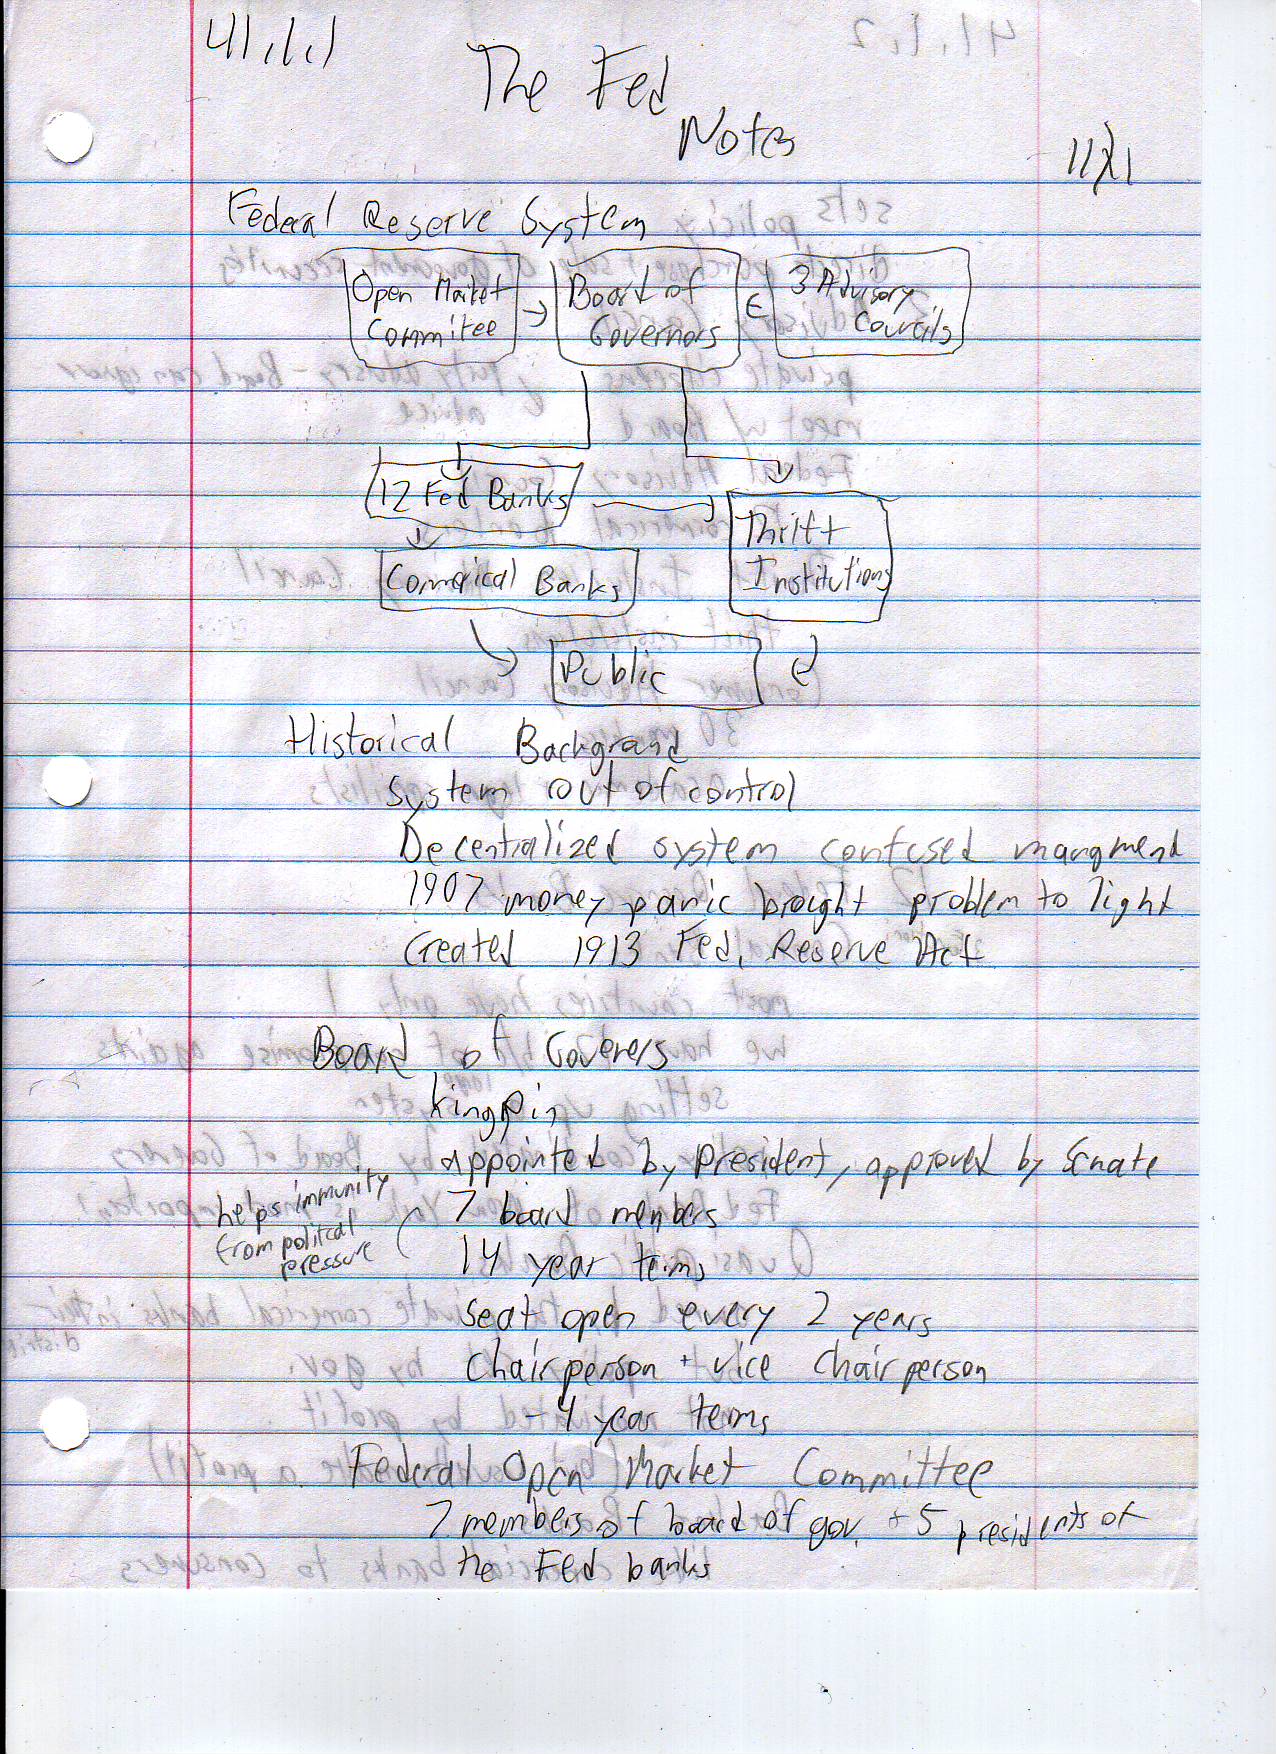 41.1.1
The Fed
Notes
11/21
Federal Reserve System
Open Market
Commitee
Board of
Governors
3 Advisory
Councils
12 Fed Banks
Thrift
Institutions
Commerical Banks
Public
Historical Background
System out of control
Decentralized system confused mangment
1907 money panic brought problem to light
Created 1913 Fed. Reserve Act
Board of Goveners
kingpin
appointed by president, approved by Senate
helps immunity
from politcal
pressure
7 board members
14 year terms
seat open every 2 years
chairperson + vice chairperson
- 4 year terms
Federal Open Market Committee
7 members of board of gov. + 5 presidents of
the Fed banks